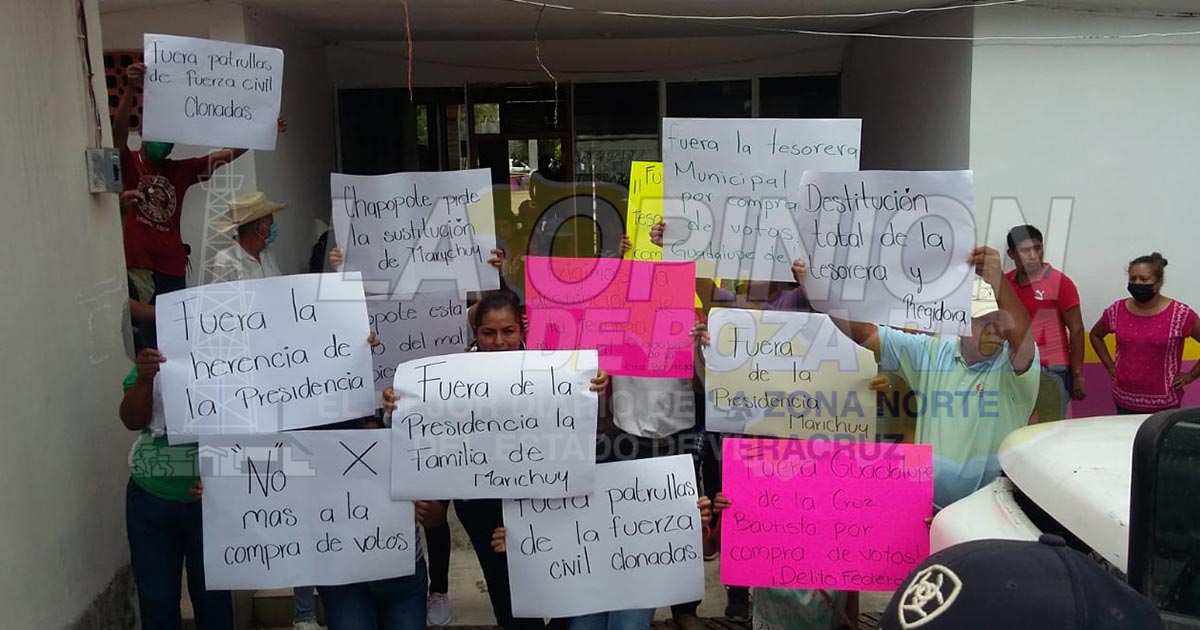 Fuera patrullas
de fuerza civil
Clonadas.
Chapopote pide
la sustitución
de Marychuy
¡¡ Fu
Teso
com
Fuera la tesorera
Municipal
por compra
de votos
Guadalupe de l
Destitución
total de la
tesorera y
Regidora
Fuera la
herencia de
la Presidencia
pote esta
del mal
destitución de
la Tesorera
Fuera de la
Presidencia la
familia de
Marichuy
Fuera
de la
Presidencia
Marichuy
"No" X
mas a la
compra de votos
Fuera patrullas
de la fuerza
civil clonadas
Fuera Guadalupe
de la Cruz
Bautista por
compra de votos!
¡Delito Federal
LA OPINIÓN
DE POZA RICA
EL DIARIO DE LA ZONA NORTE
DEL ESTADO DE VERACRUZ